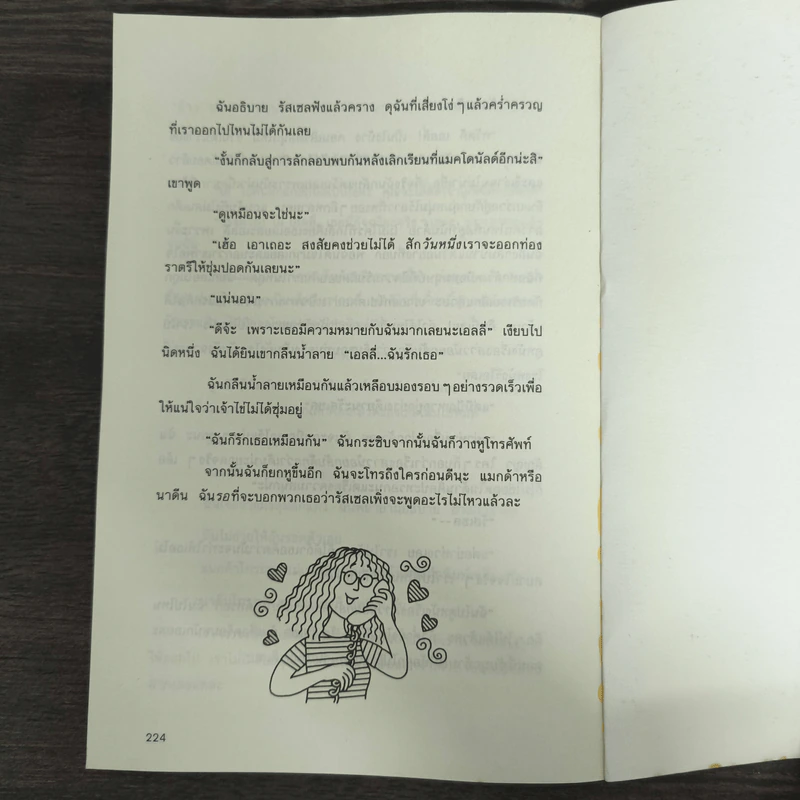 ฉันอธิบาย รัสเซลฟังแล้วคราง ดุฉันที่เสี่ยงโง่ ๆ แล้วคร่ำครวญ
ที่เราออกไปไหนไม่ได้กันเลย
"งั้นก็กลับสู่การลักลอบพบกันหลังเลิกเรียนที่แมคโดนัลด์อีกน่ะสิ"
เขาพูด
"ดูเหมือนจะใช่นะ"
"เฮ้อ เอาเถอะ สงสัยคงช่วยไม่ได้ สักวันหนึ่งเราจะออกท่อง
ราตรีให้ชุ่มปอดกันเลยนะ"
"แน่นอน"
"ดีจ้ะ เพราะเธอมีความหมายกับฉันมากเลยนะเอลลี่" เงียบไป
นิดหนึ่ง ฉันได้ยินเขากลืนน้ำลาย "เอลลี่...ฉันรักเธอ"
ฉันกลืนน้ำลายเหมือนกันแล้วเหลือบมองรอบ ๆ อย่างรวดเร็วเพื่อ
ให้แน่ใจว่าเจ้าไข่ไม่ได้ซุ่มอยู่
"ฉันก็รักเธอเหมือนกัน" ฉันกระซิบจากนั้นฉันก็วางหูโทรศัพท์
จากนั้นฉันก็ยกหูขึ้นอีก ฉันจะโทรถึงใครก่อนดีนะ แมกด้าหรือ
นาดีน ฉันรอที่จะบอกพวกเธอว่ารัสเซลเพิ่งจะพูดอะไรไม่ไหวแล้วละ
224